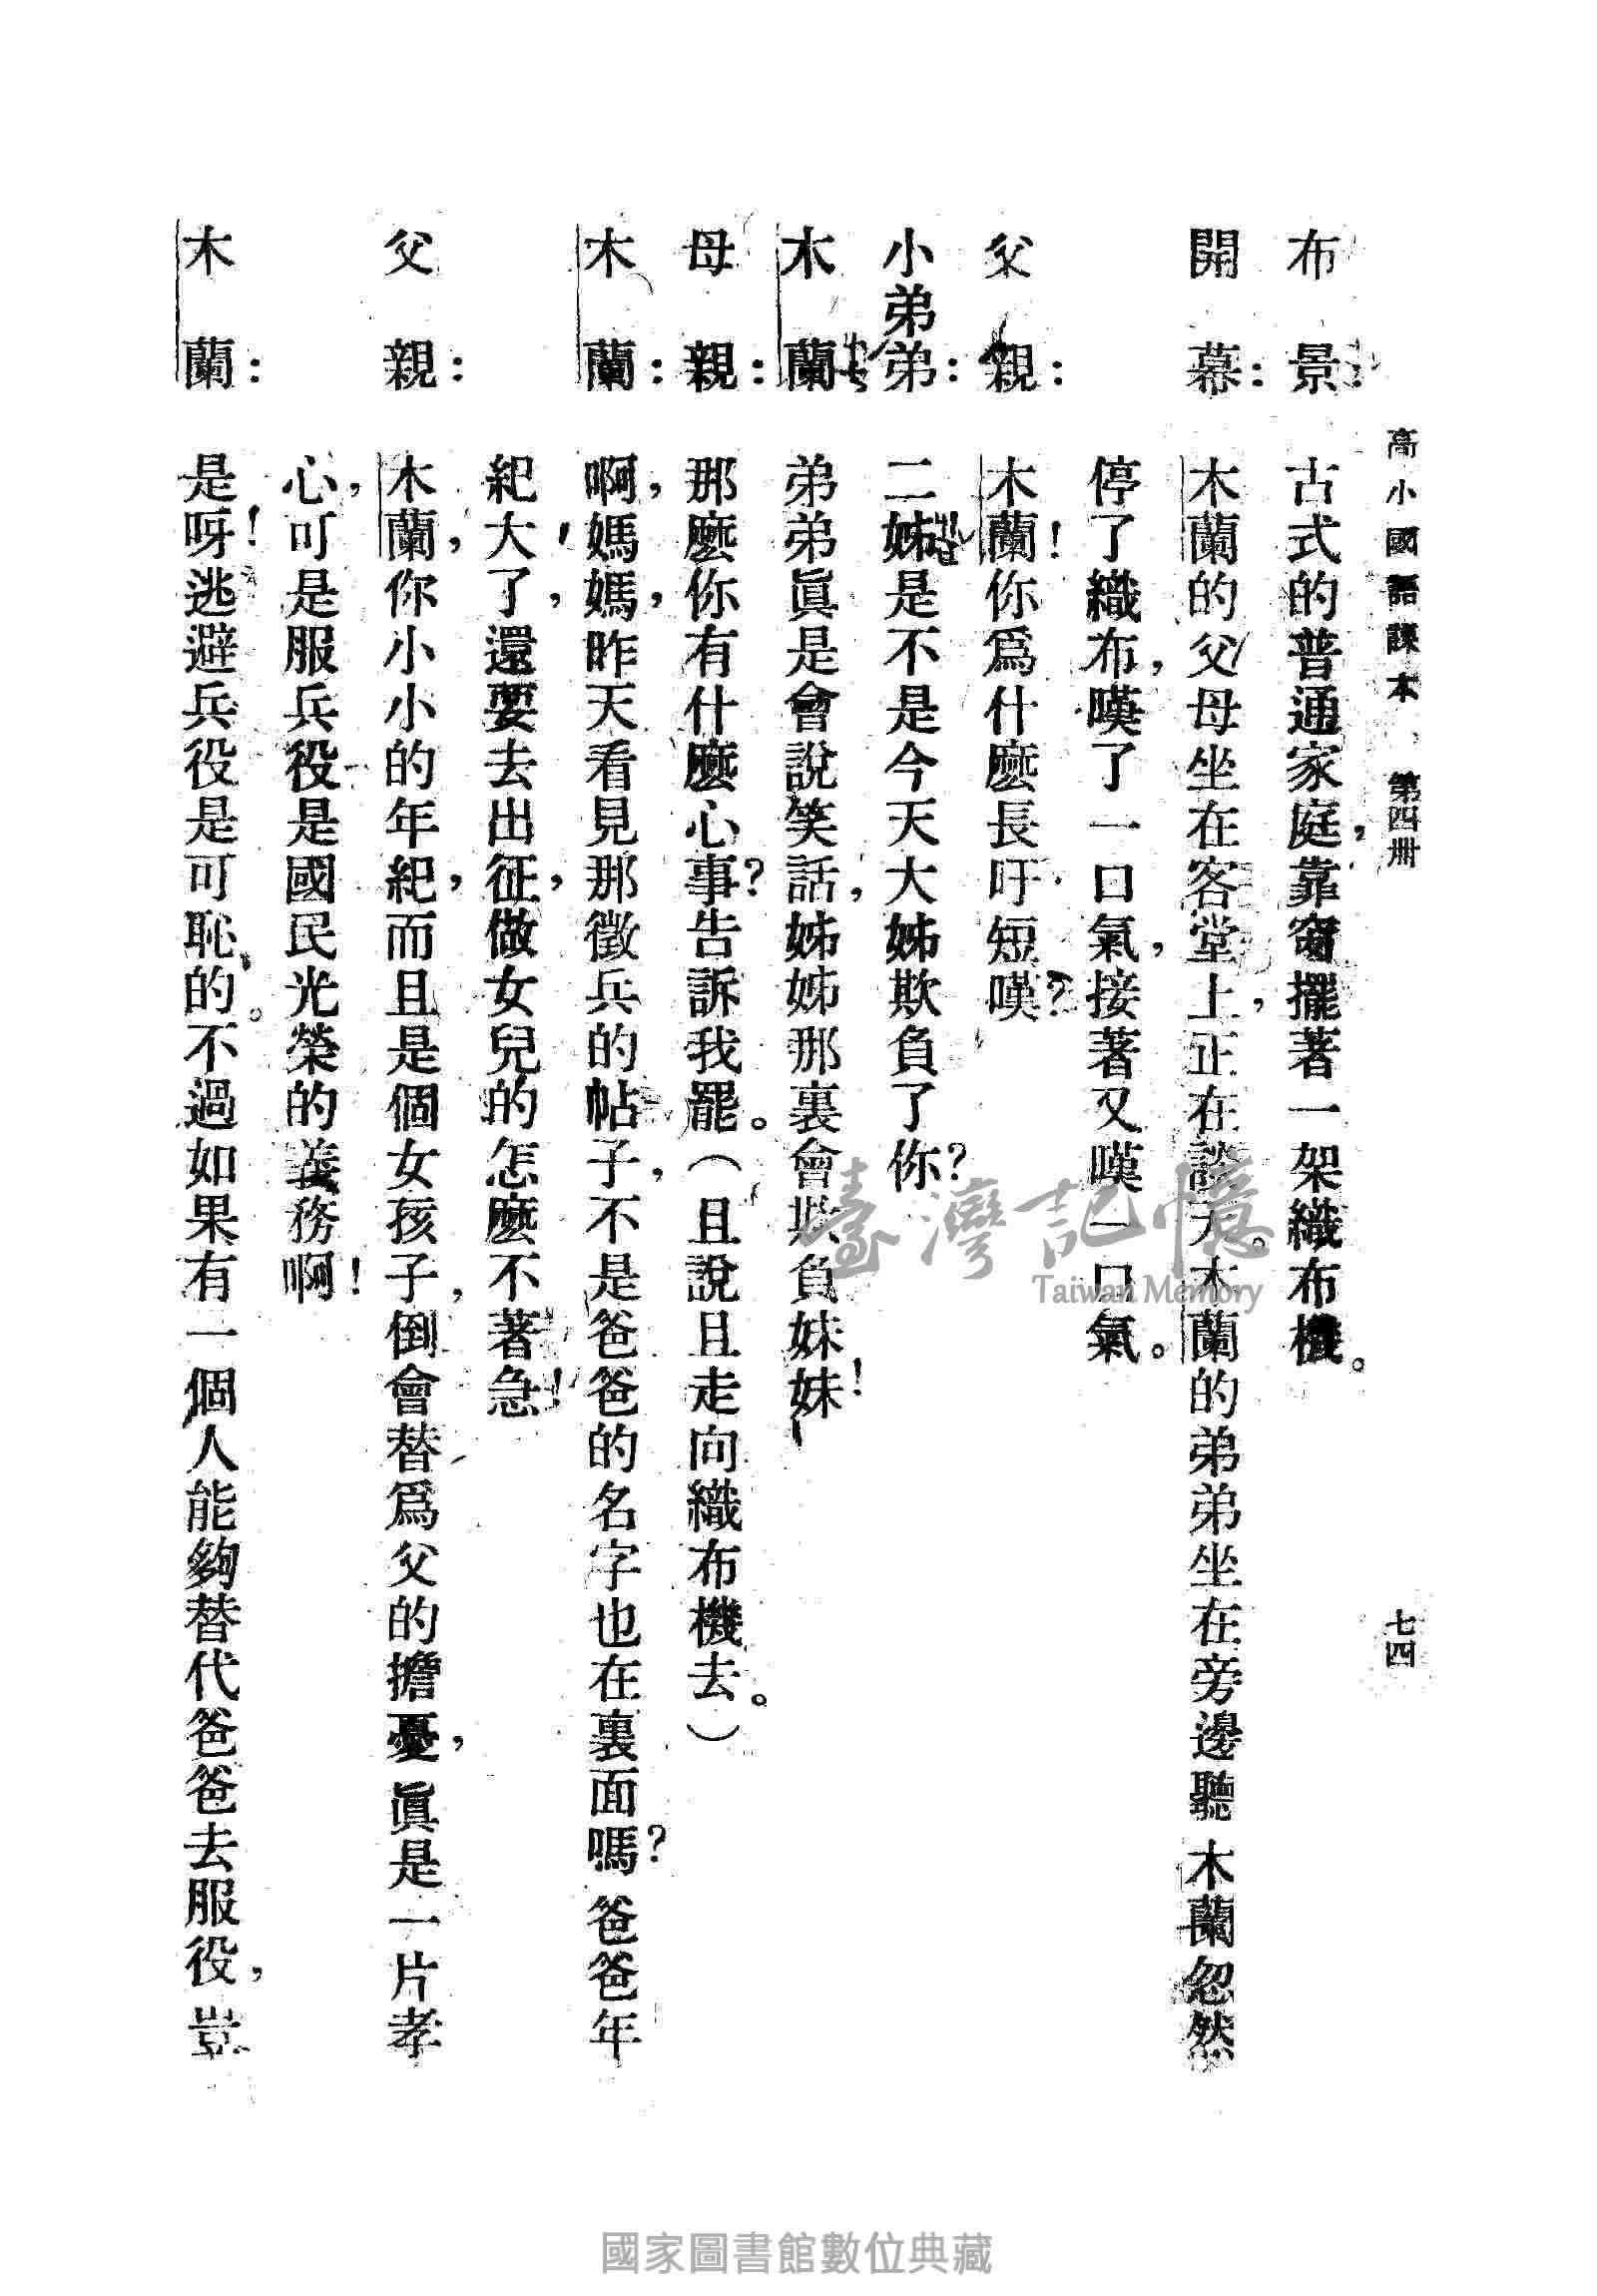 高小國語課本　第四冊
七四
布景：古式的普通家庭，靠窗擺著一架織布機。
開幕：木蘭的父母坐在客堂上，正在談天。木蘭的弟弟坐在旁邊聽木蘭忽然
停了織布，嘆了一口氣，接著又嘆一口氣。
父親：木蘭！你爲什麽長吁短嘆？
小弟弟：二姊是不是今天大姊欺負了你？
木蘭：弟弟眞是會說笑話，姊姊那裏會欺負妹妹！
母親：那麽你有什麽心事？告訴我罷。（且說且走向織布機去。）
木蘭：啊，媽媽，昨天看見那徵兵的帖子，不是爸爸的名字也在裏面嗎？爸爸年
紀大了，還要去出征，做女兒的怎麽不著急！
父親：木蘭，你小小的年紀，而且是個女孩子，倒會替爲父的擔憂，眞是一片孝
心，可是服兵役是國民光榮的義務啊！
木蘭：是呀！逃避兵役是可恥的。不過如果有一個人能夠替代爸爸去服役，豈
臺灣記憶
Taiwan Memory
國家圖書館數位典藏